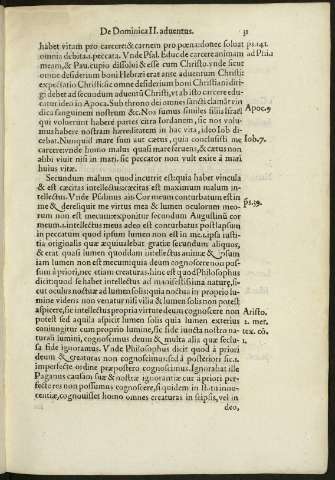 De Dominica II. aduentus. 31
habet vitam pro carcere: & carnem pro pœna: donec soluat ps. 141.
omnia debita .i. peccata. Vnde Psal. Educ de carcere animam ad Phil. 1
meam, & Pau. cupio dissolui & esse cum Christo. vnde sicut
omne desiderium boni Hebræi erat ante aduentum Christi:
expectatio Christi: sic omne desiderium boni Christiani diri
gi debet ad secundum aduentū Christi, vt ab isto carcere edu-
catur ideo in Apoca. Sub throno dei omnes sancti clamāt vin Apoc. 9
dica sanguinem nostrum &c. Nos sumus similes filiis Israel
qui voluerunt habere partes citra Iordanem, sic nos volu-
mus habere nostram hæreditatem in hac vita, ideo Iob di-
cebat. Nunquid mare sum aut cætus, quia conclusisti me Iob. 7.
carcere: vnde homo malus quasi mare feruens, & cætus non
alibi viuit nisi in mari. sic peccator non vult exite à mari
huius vitæ.
Secundum malum quod incurrit est: quia habet vincula
& est cæcitas intellectus: cæcitas est maximum malum in-
tellectus. Vnde Psalmus ait Cor meum conturbatum est in
me & dereliquit me virtus mea & lumen oculorum meo- ps. 39.
rum non est mecum: exponitur secundum Augustinū cor
meum .i. intellectus meus adeo est conturbatus post lapsum
in peccatum quod ipsum lumen non est in me .i. ipsa iusti-
tia originalis quæ æquiualebat gratiæ secundum aliquos,
& erat quasi lumen quoddam intellectus animæ & ipsum
iam lumen non est mecum: quia deum cognoscere non pos-
sum à priori, nec etiam creaturas. hinc est quod Philosophus
dicit: quod se habet intellectus ad manifestissima naturæ, si-
cut oculus noctuæ ad lumen solis: quia noctua in proprio lu-
mine videns non venatur nisi vilia & lumen solis non potest
aspicere, sic intellectus propria virtute deum cognoscere non Aristo.
potest sed aquila aspicit lumen solis quia lumen exterius 2. met.
coniungitur cum proprio lumine, sic fide iuncta nostro na- tex. cō.
turali lumini, cognoscimus deum & multa alia quæ seclu- 1.
sa fide ignoramus. Vnde Philosophus dicit quod à priori
deum & creaturas non cognoscimus: sed à posteriori sic .i.
imperfecte ordine præpostero cognoscimus. Ignorabat ille
Paganus causam suæ & nostræ ignorantiæ cur à priori per-
fecte res non possumus cognoscere, si quidem in statu inno-
centiæ, cognouisset homo omnes creaturas in seipsis, vel in
deo,